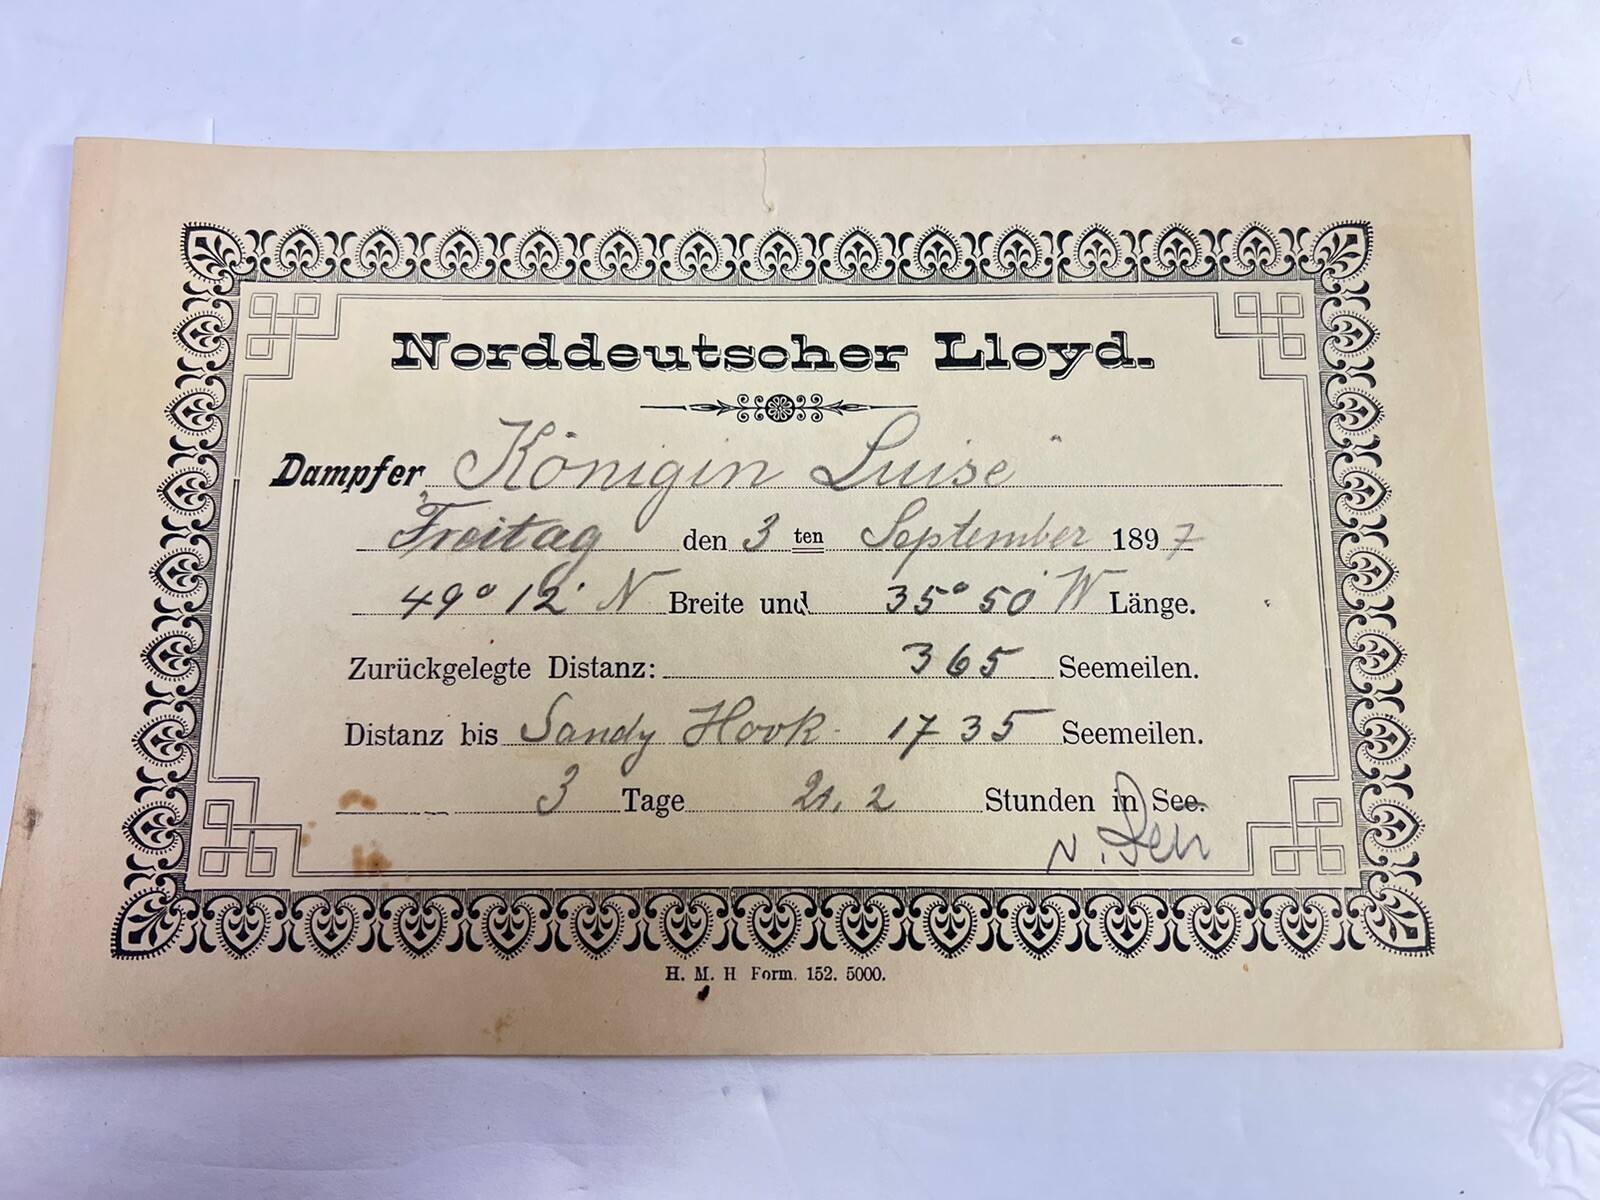 Norddeutscher Lloyd.
Dampfer Königin Luise"
Freitag den 3 ten September 1897
49° 12' N Breite und 35° 50' W Länge.
Zurückgelegte Distanz: 365 Seemeilen.
Distanz bis Sandy Hook 1735 Seemeilen.
3 Tage 21,2 Stunden in See.
N.
H. M. H Form. 152. 5000.